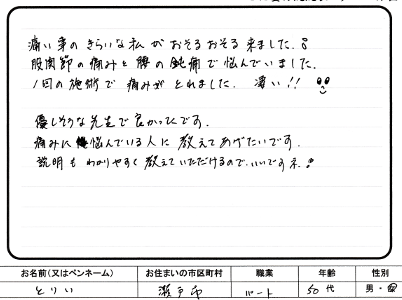 痛い事のきらいな私がおそるおそる来ました。
股関節の痛みと腰の鈍痛で悩んでいました。
1回の施術で痛みがとれました。凄い!!
優しそうな先生で良かったです。
痛みに悩んでいる人に教えてあげたいです。
説明もわかりやすく教えていただけるので、いいですネ!
お名前(又はペンネーム) お住まいの市区町村 職業 年齢 性別
とりい 瀬戸市 パート 50代 男・女